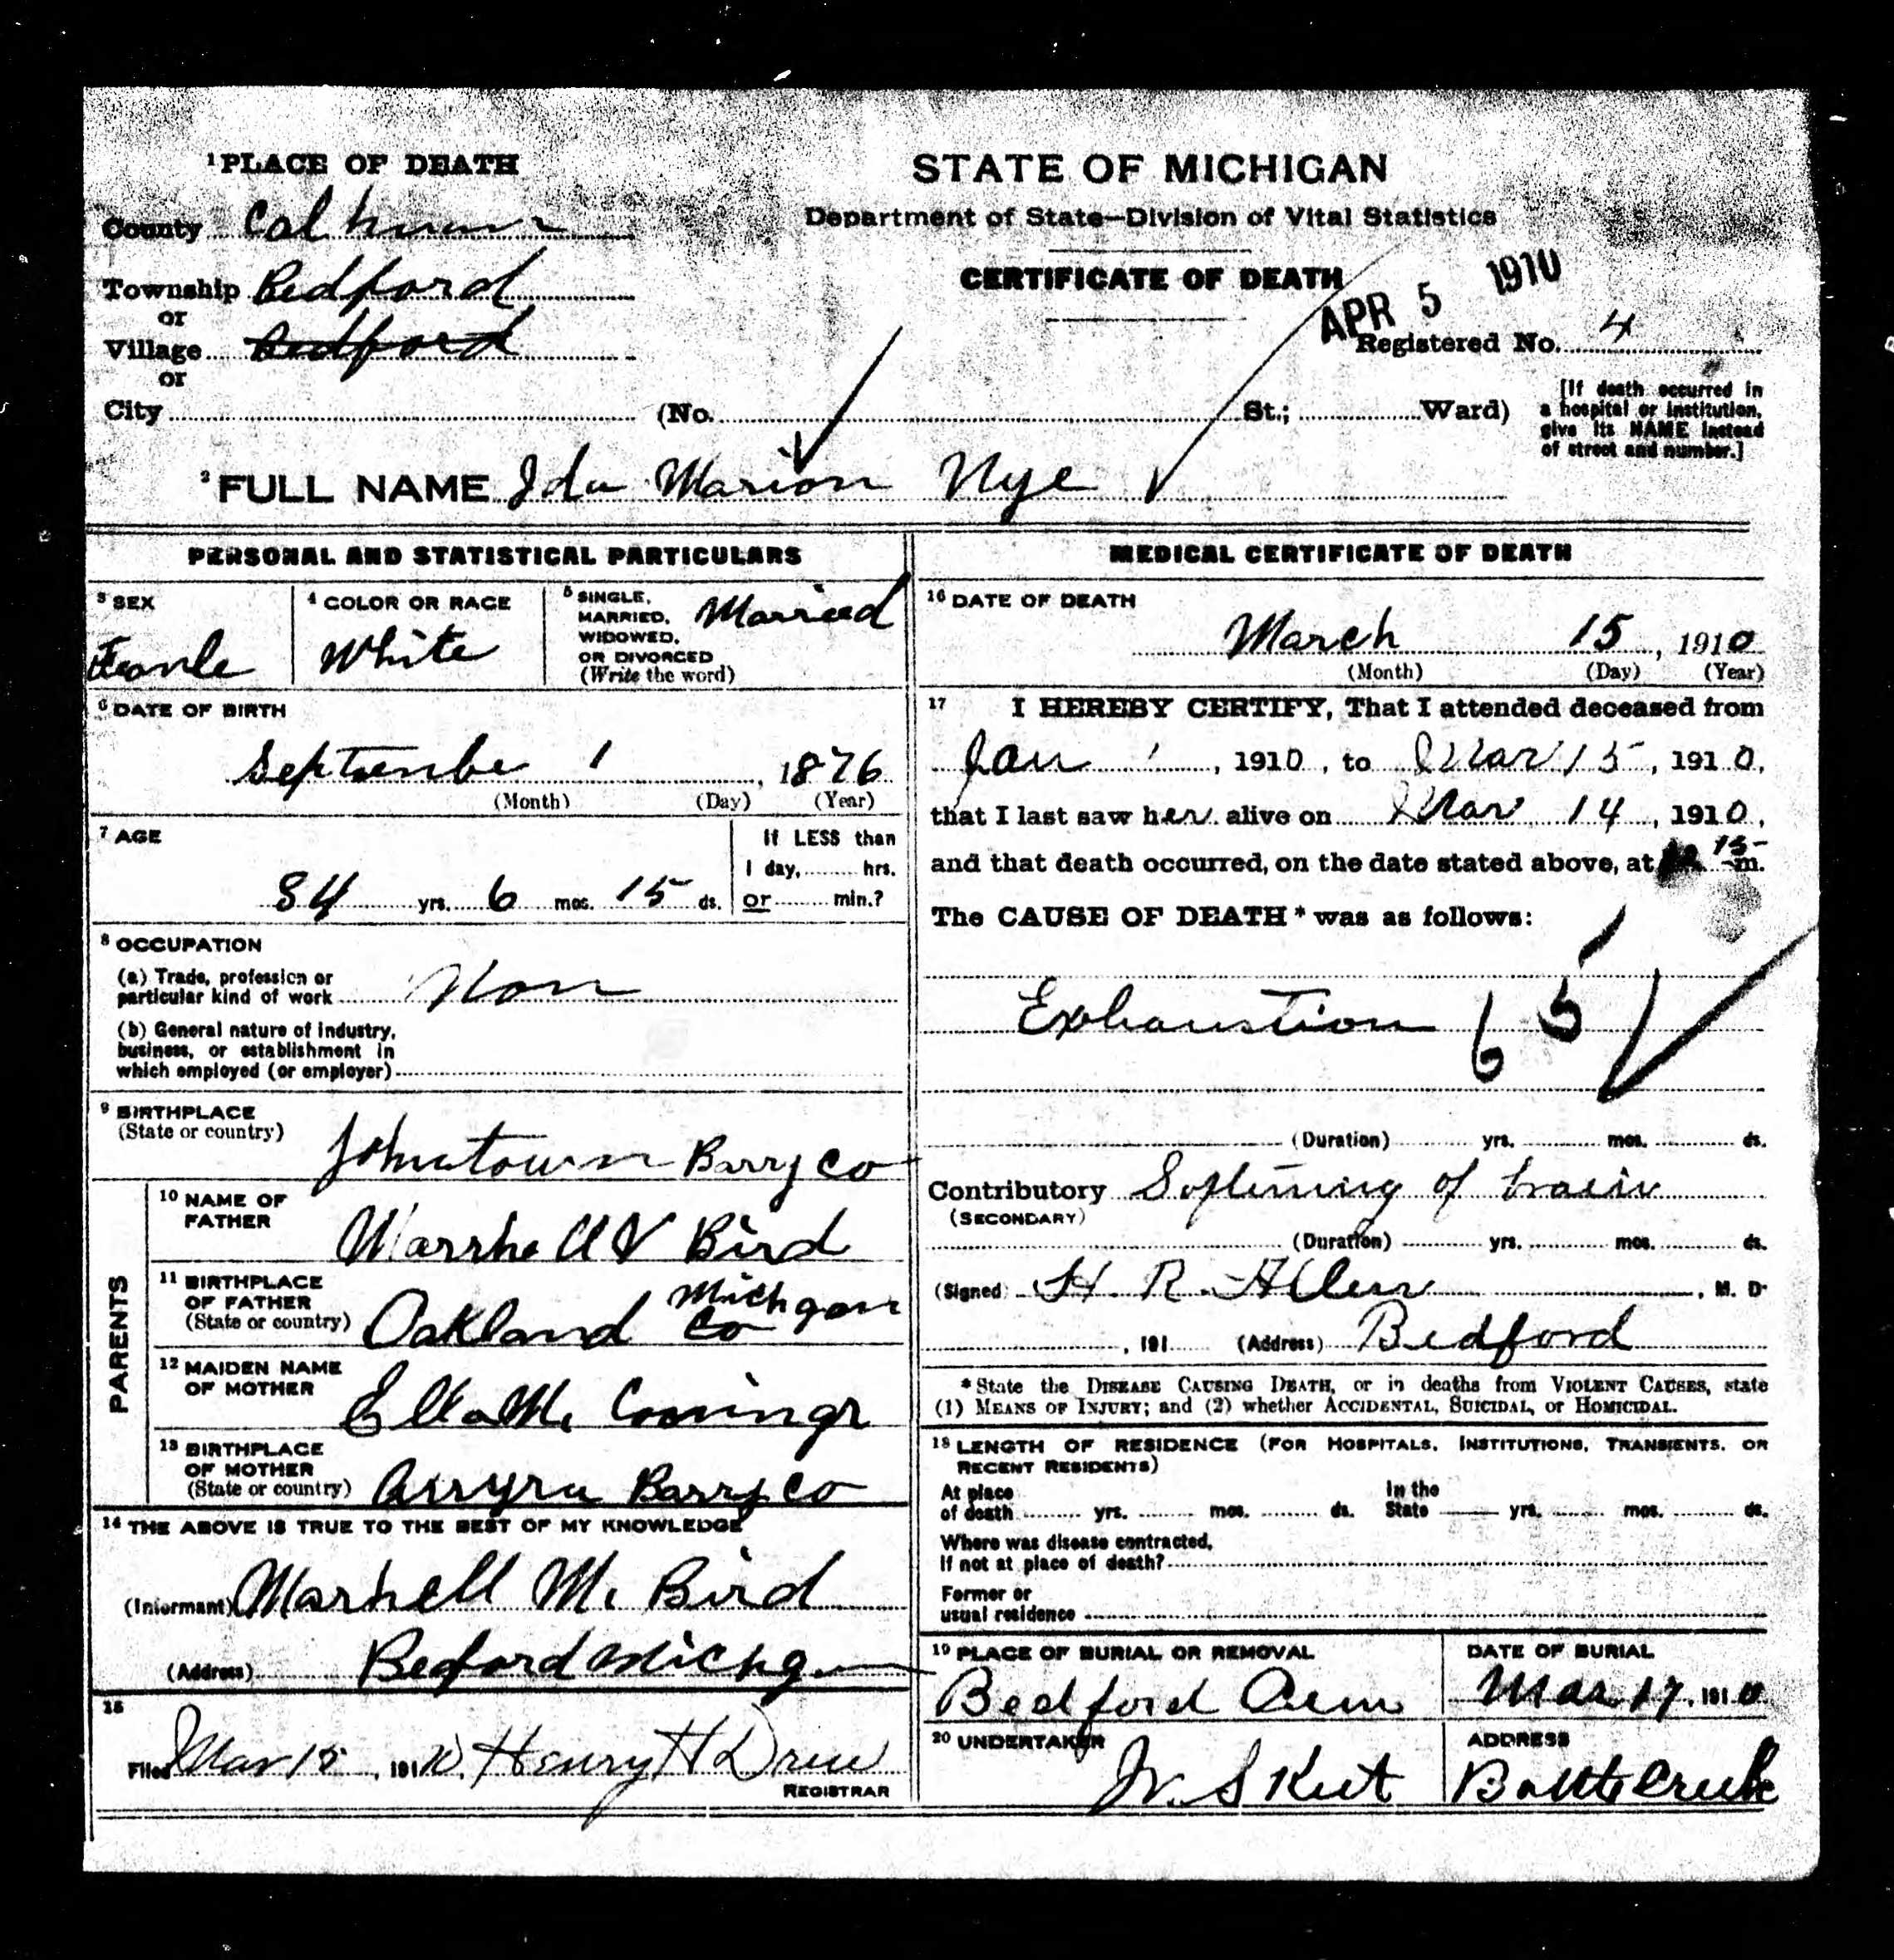 1 PLACE OF DEATH
STATE OF MICHIGAN
Department of State—Division of Vital Statistics
CERTIFICATE OF DEATH
County Calhoun
Township Bedford
or
Village Bedford
or
City (No. St.; Ward)
APR 5 1910
Registered No. 4
[If death occurred in
a hospital or institution,
give its NAME instead
of street and number.]
2 FULL NAME Ida Marion Nye
PERSONAL AND STATISTICAL PARTICULARS
3 SEX
4 COLOR OR RACE
White
5 SINGLE,
MARRIED,
WIDOWED,
OR DIVORCED
(Write the word)
Married
6 DATE OF BIRTH
Septembe 1, 1876
(Month) (Day) (Year)
7 AGE
34 yrs. 6 mos. 15 ds.
If LESS than
1 day, hrs.
or min.?
8 OCCUPATION
(a) Trade, profession or
particular kind of work Non
(b) General nature of industry,
business, or establishment in
which employed (or employer)
9 BIRTHPLACE
(State or country)
Johnstown Barry Co
PARENTS
10 NAME OF
FATHER
Bird
11 BIRTHPLACE
OF FATHER
(State or country)
Oakland Co Michgan
12 MAIDEN NAME
OF MOTHER
Ella M.
13 BIRTHPLACE
OF MOTHER
(State or country)
Barry Co
14 THE ABOVE IS TRUE TO THE BEST OF MY KNOWLEDGE
(Informant) Marhell M. Bird
(Address) Beford Michgan
15
Filed Mar 15, 1910, Henry H Drew
REGISTRAR
MEDICAL CERTIFICATE OF DEATH
16 DATE OF DEATH
March 15, 1910
(Month) (Day) (Year)
17 I HEREBY CERTIFY, That I attended deceased from
Jan 1, 1910, to Mar 15, 1910,
that I last saw her alive on Mar 14, 1910,
and that death occurred, on the date stated above, at 15 m.
The CAUSE OF DEATH* was as follows:
Exhaustion 65
(Duration) yrs. mos. ds.
Contributory Softening of brain
(SECONDARY)
(Duration) yrs. mos. ds.
(Signed) H. R. Allen, M. D.
, 191 (Address) Bedford
*State the DISEASE CAUSING DEATH, or in deaths from VIOLENT CAUSES, state
(1) MEANS OF INJURY; and (2) whether ACCIDENTAL, SUICIDAL, or HOMICIDAL.
18 LENGTH OF RESIDENCE (FOR HOSPITALS, INSTITUTIONS, TRANSIENTS, OR
RECENT RESIDENTS)
At place
of death yrs. mos. ds.
In the
State yrs. mos. ds.
Where was disease contracted,
If not at place of death?
Former or
usual residence
19 PLACE OF BURIAL OR REMOVAL
Bedford Cem
DATE OF BURIAL
Mar 17, 1910
20 UNDERTAKER
ADDRESS
Battle Creek